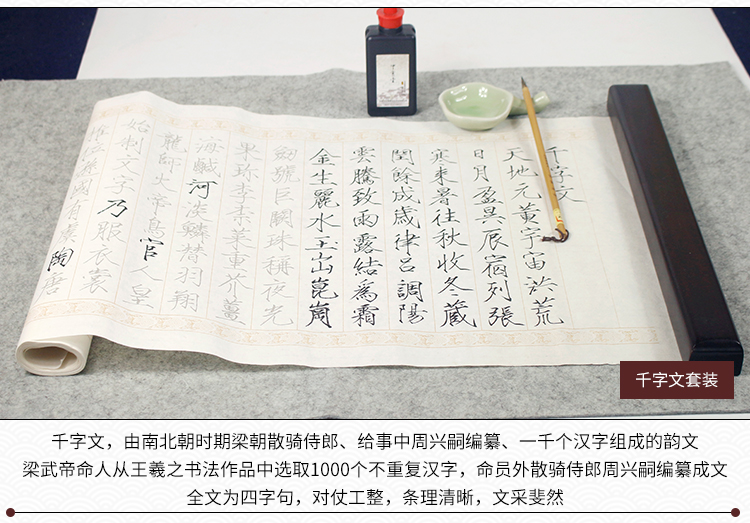 千字文
天地元黃宇宙洪荒
日月盈昃辰宿列張
寒來暑往秋收冬藏
閏餘成歲律呂調陽
雲騰致雨露結為霜
金生麗水玉出崑崗
劍號巨闕珠稱夜光
果珍李柰菜重芥薑
海鹹河淡鱗潛羽翔
龍師火帝鳥官人皇
始制文字乃服衣裳
推位讓國有虞陶唐
千字文套装
千字文，由南北朝时期梁朝散骑侍郎、给事中周兴嗣编纂、一千个汉字组成的韵文
梁武帝命人从王羲之书法作品中选取1000个不重复汉字，命员外散骑侍郎周兴嗣编纂成文
全文为四字句，对仗工整，条理清晰，文采斐然